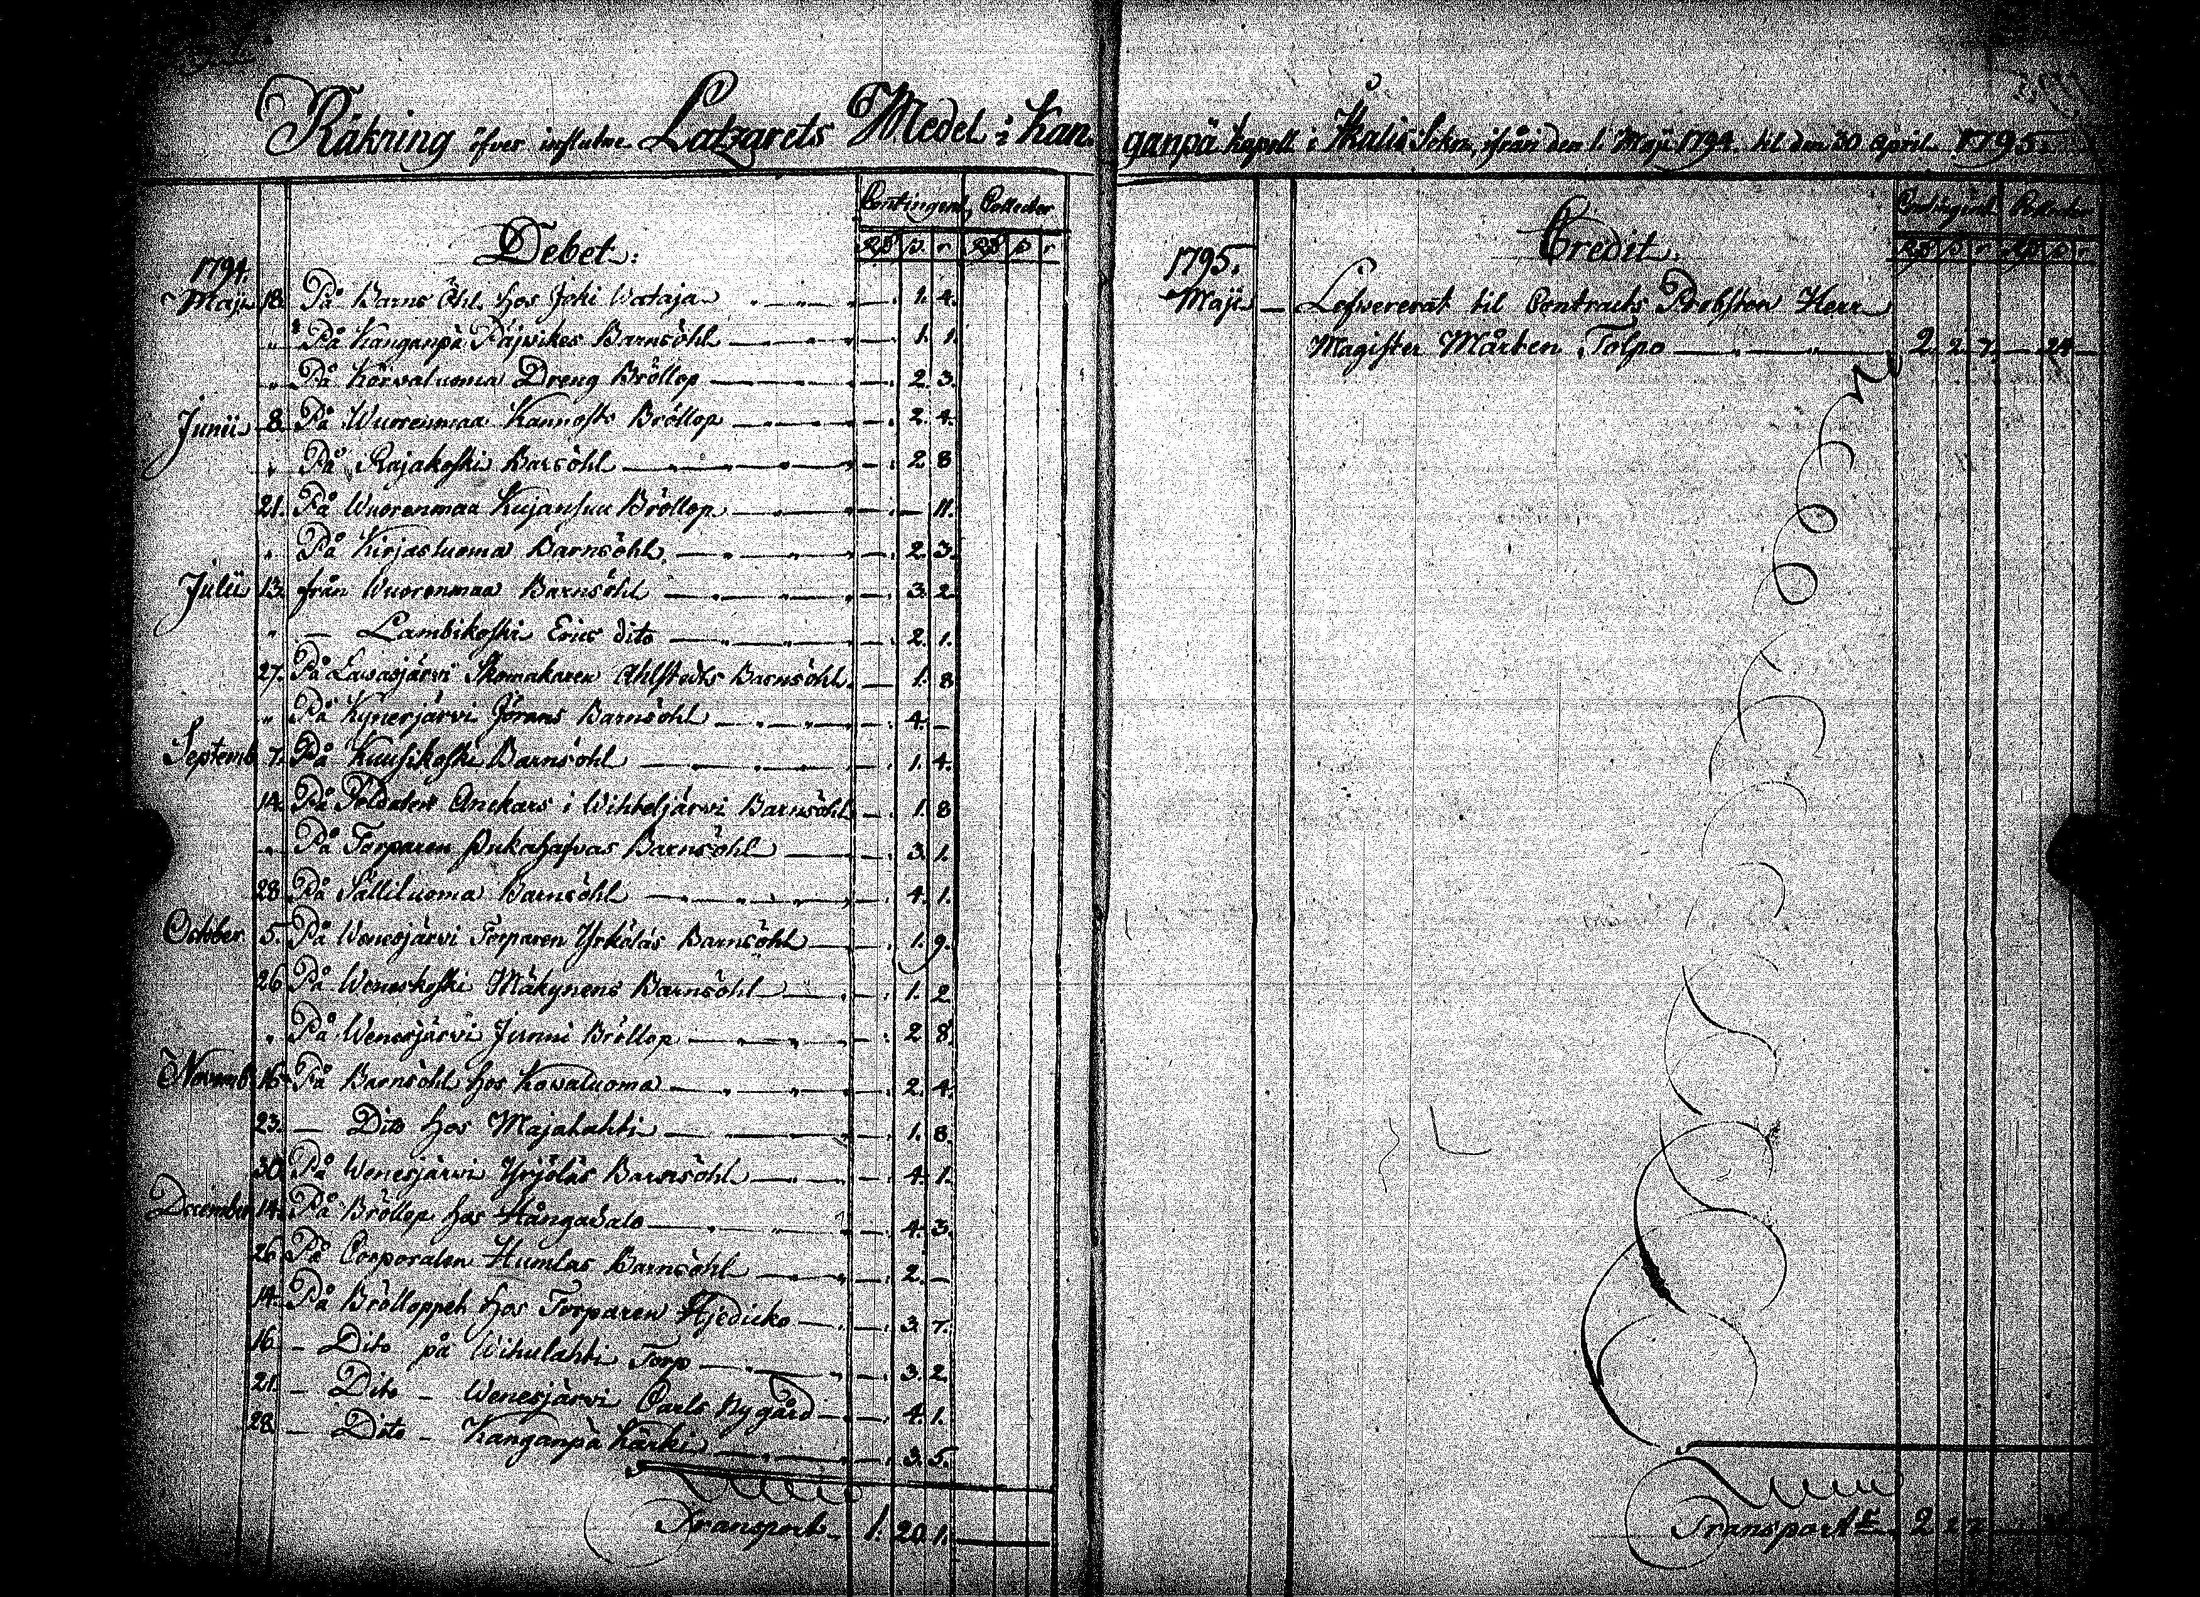 Räkning öfver influtne Latzarets Medel i Kan¬
ganpä kapell i Ikalis Sokn, ifrån den 1. Maji 1794. til den 30 April 1795.
Contingent, Collecter
Debet:
Rd ß. r. Rd ß r
1794.
Maji 18. På Barns Öhl. hos Jaki Wataja — 1. 4.
" På Kanganpä Räjvikes Barnsöhl — 1. 1.
" På Korvaluoma Dreng Bröllop — 2. 3.
Junii 8. På Wuorenmaa Bröllop — 2. 4.
" På Rajakoski Barsöhl — 2 8
21. På Wuorenmaa Kujansuu Bröllop — — 11.
" På Kirjasluoma Barnsöhl — 2. 3.
Julii 13. från Wuorenmaa Barnsöhl — 3. 2.
" — Lambikoski Erics dito — 2. 1.
27. På Lawasjärvi Skomakaren Ahlstedts Barnsöhl. — 1. 8
" På Kynerjärvi Jörans Barnsöhl — 4. —
Septemb. 7. På Kuusikoski Barnsöhl — 1. 4.
14. På Soldaten Anckars i Wihteljärvi Barnsöhl — 1. 8
" På Torparen Barnsöhl — 3. 1.
28 På Sälliluoma Barnsöhl — 4. 1.
October 5. På Wenesjärvi Torparen Yrköläs Barnsöhl — 1. 9.
26 På Weneskoski Mäkynens Barnsöhl — 1. 2
" På Wenesjärvi Junni Bröllop — 2 8
Novemb. 16. På Barnsöhl hos Kovaluoma — 2. 4.
23. — Dito hos Majalahti — 1. 8.
30. På Wenesjärvi Yrjöläs Barnsöhl — 4. 1.
December 14. På Bröllop hos Hångasalo — 4. 3.
26 På Corporalen Humlas Barnsöhl — 2. —
14. På Bröllopet hos Torparen — 3. 7.
16. — Dito på Wihulahti Torp — 3. 2.
21. — Dito — Wenesjärvi Carls Nygård — 4. 1.
28. — Dito — Kanganpä Kärki — 3. 5.
Transport. 1. 20. 1. —
Contingent. Collecter
Credit.
Rd ß r Rd ß r
1795.
Maji — Lefvererat til Contracts Probsten Herr
Magister Mårten Tolpo — 2. 2. 7. — 24 —
Transport 2 2 7